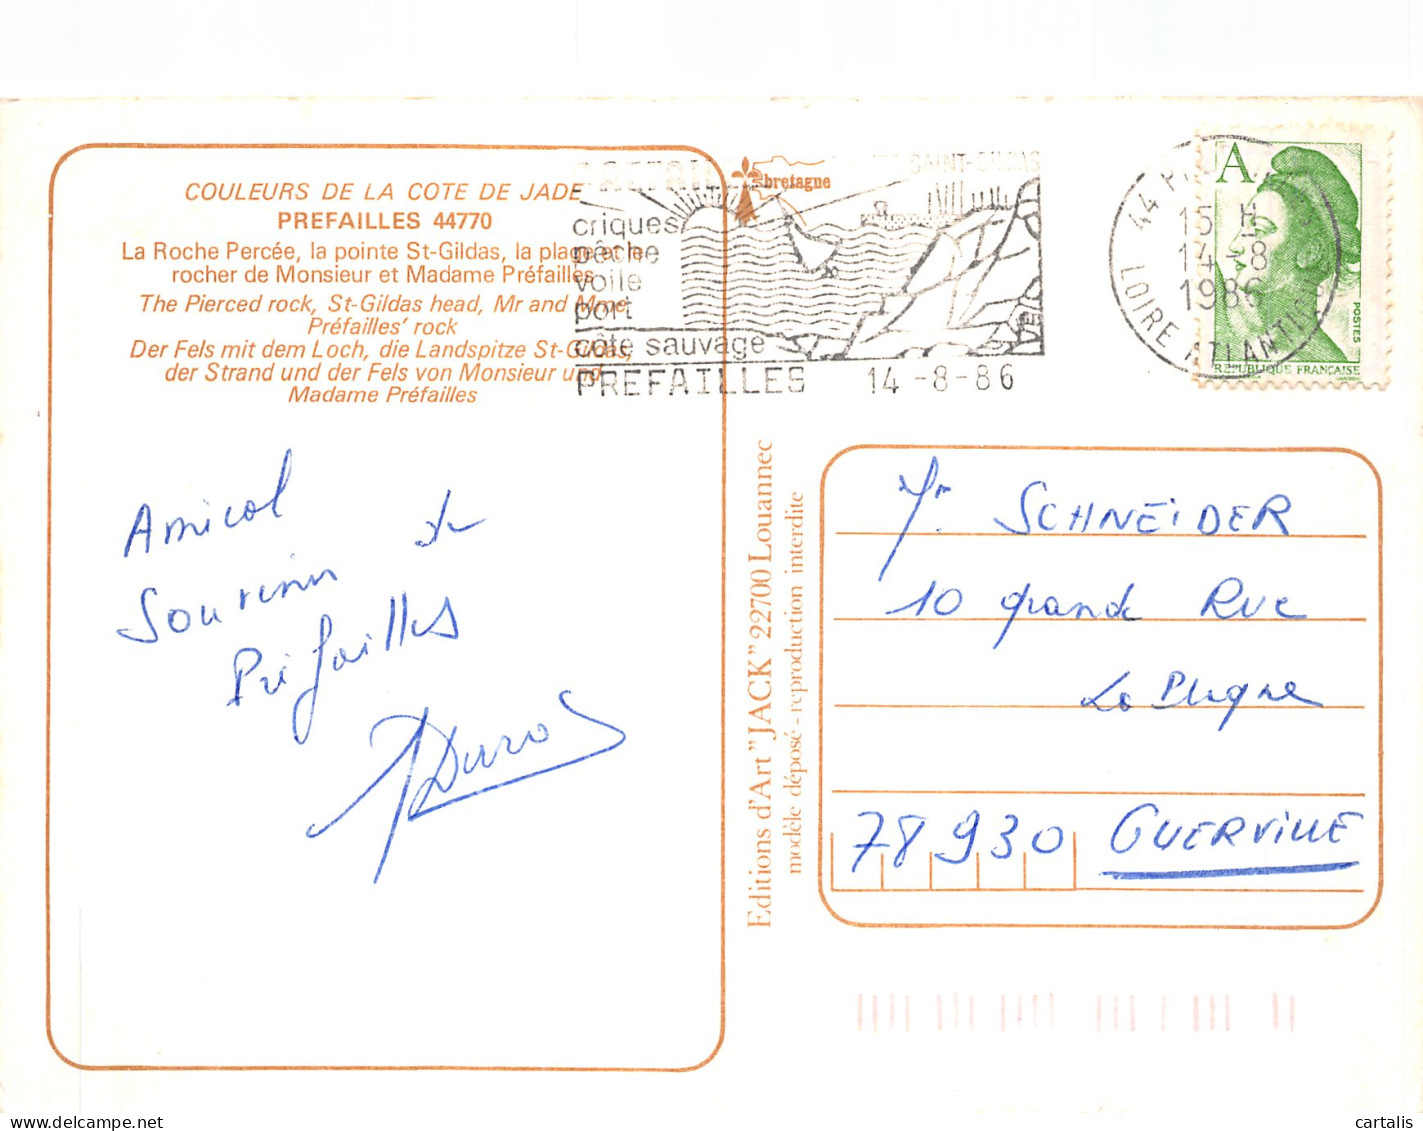 COULEURS DE LA COTE DE JADE
PREFAILLES 44770
La Roche Percée, la pointe St-Gildas, la plage et le
rocher de Monsieur et Madame Préfailles
The Pierced rock, St-Gildas head, Mr and Mme
Préfailles' rock
Der Fels mit dem Loch, die Landspitze St-Gildas,
der Strand und der Fels von Monsieur und
Madame Préfailles
bretagne
SAINT-GILDAS
criques
pêche
voile
port
côte sauvage
PREFAILLES 14-8-86
44
15 H
14-8
1986
LOIRE ATLANTIQUE
A
POSTES
REPUBLIQUE FRANÇAISE
Amical
Souvenir de
Préfailles
Editions d'Art "JACK" 22700 Louannec
modèle déposé - reproduction interdite
SCHNEIDER
10 grande Rue
La Plagne
78930 GUERVILLE
cartalis